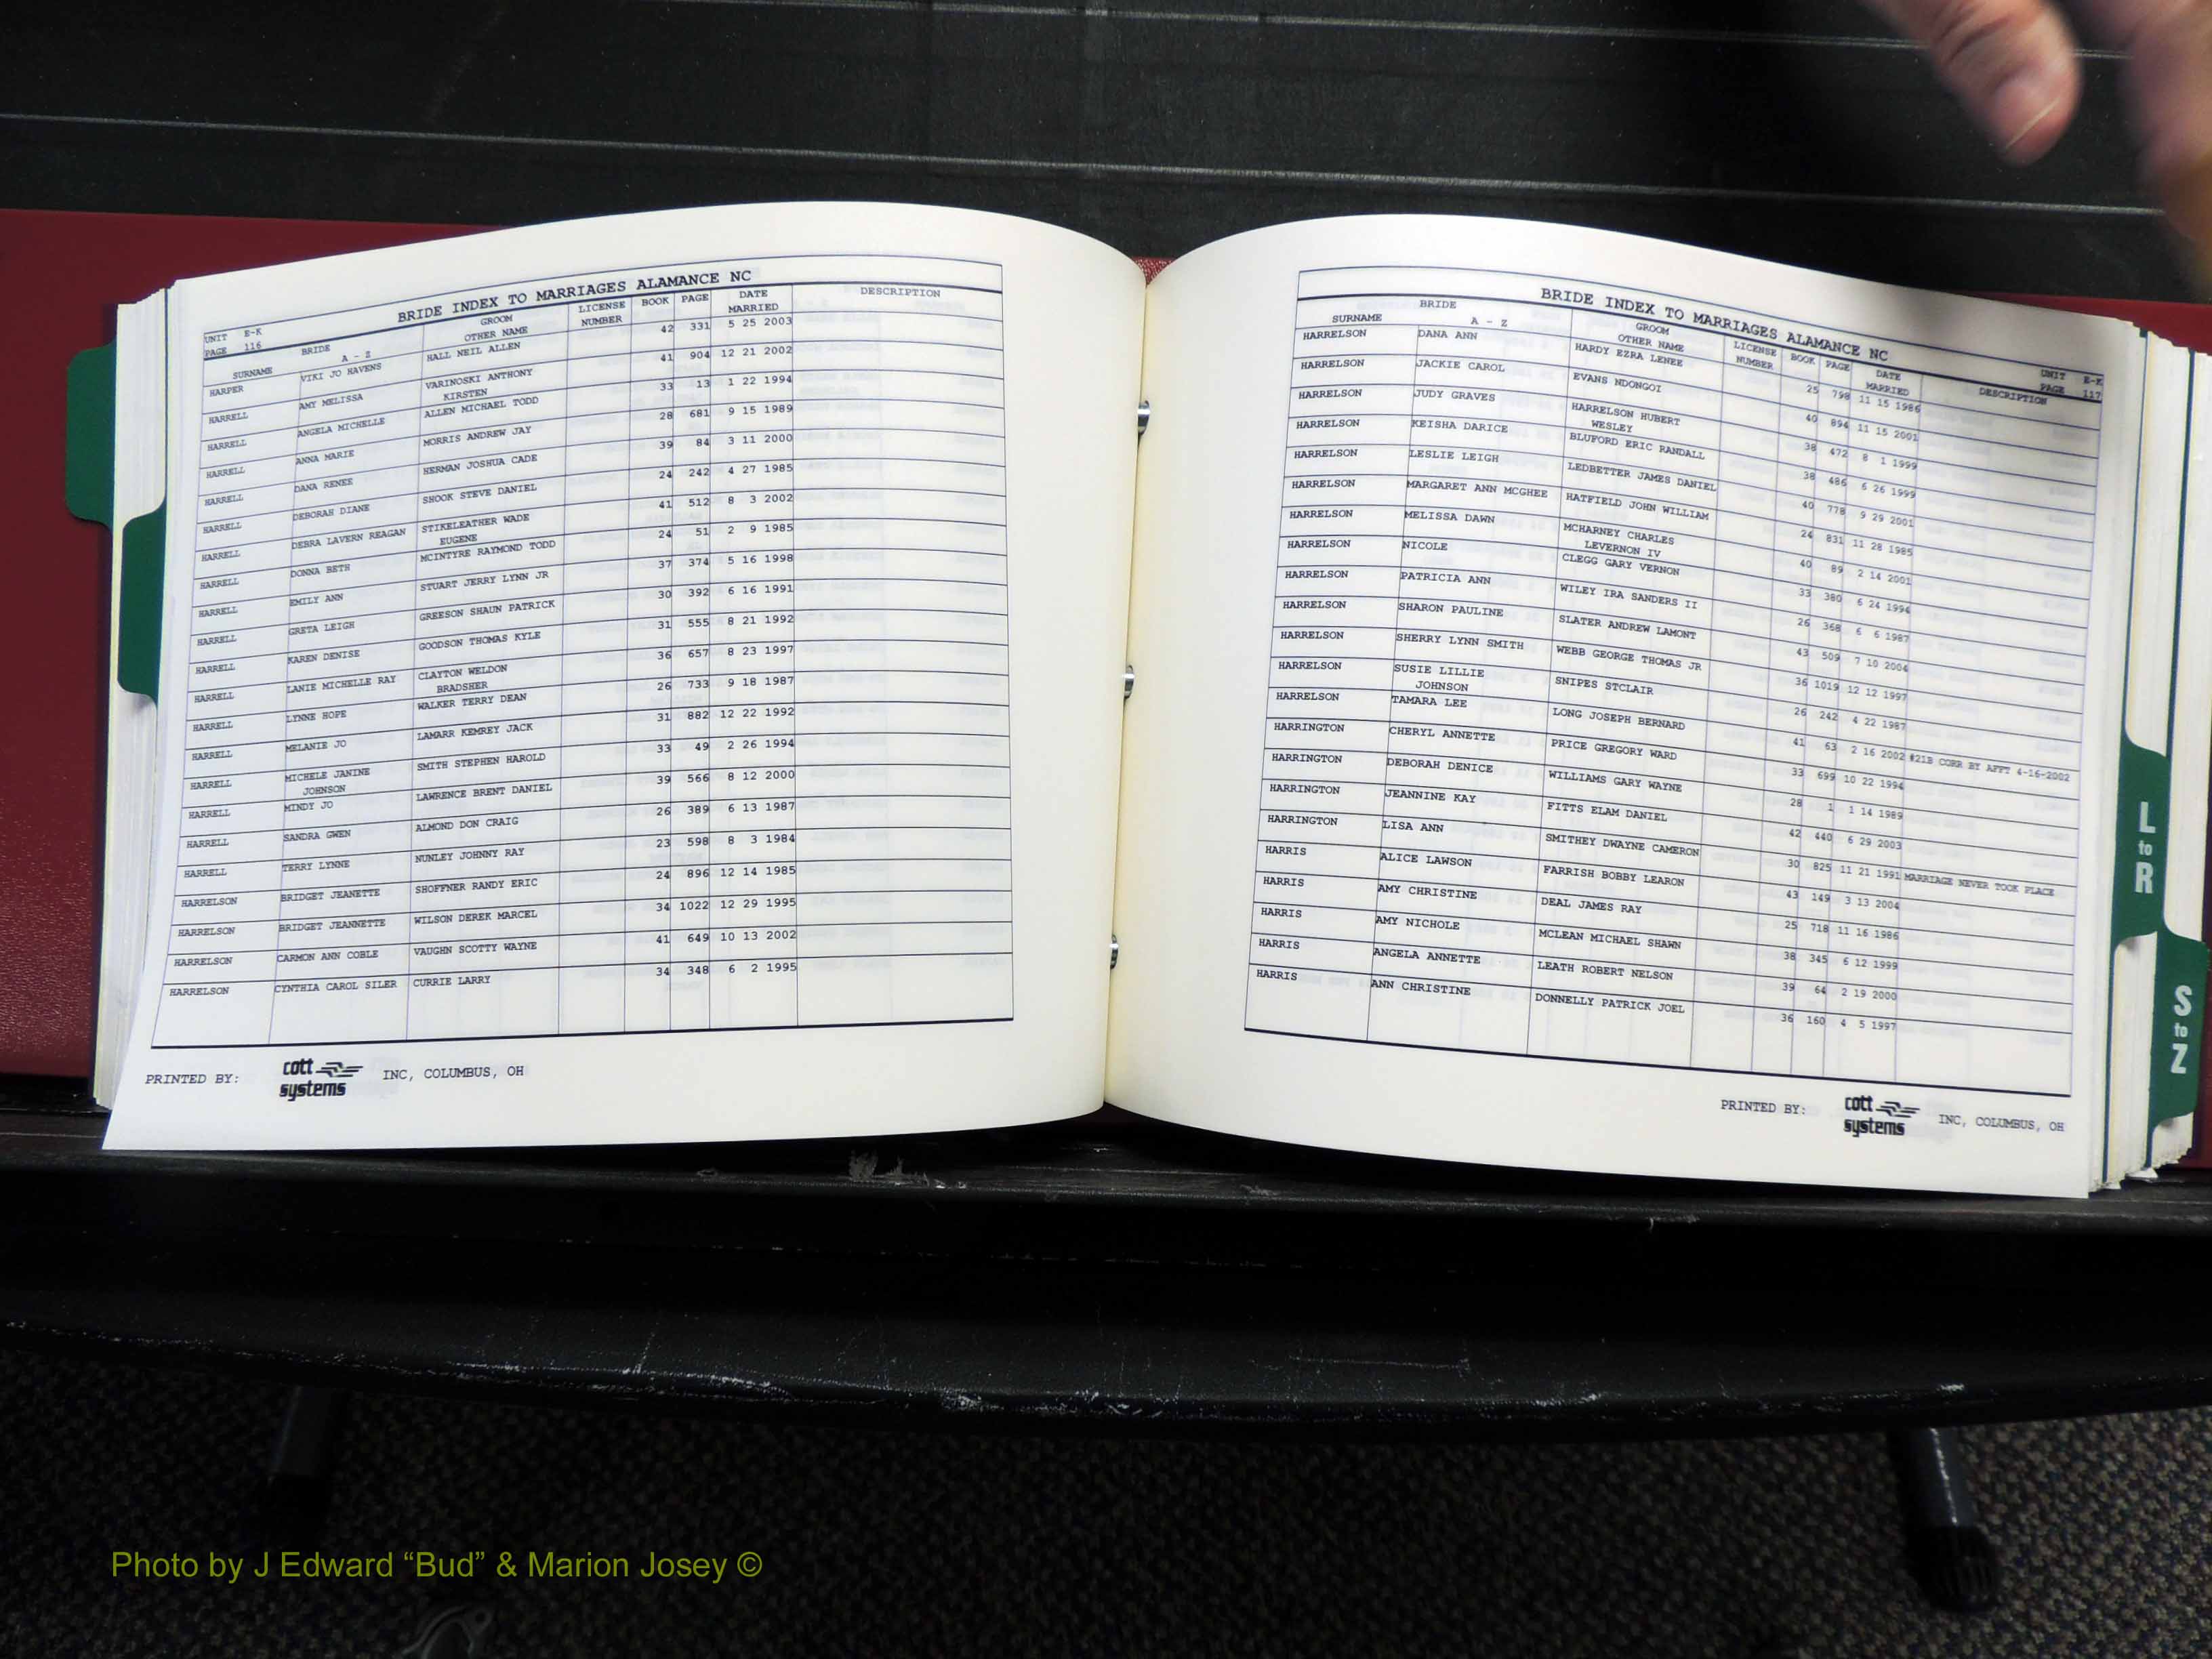 BRIDE INDEX TO MARRIAGES ALAMANCE NC
UNIT E-K
PAGE 116
BRIDE GROOM LICENSE BOOK PAGE DATE DESCRIPTION
SURNAME A - Z OTHER NAME NUMBER MARRIED
HARPER VIKI JO HAVENS HALL NEIL ALLEN 42 331 5 25 2003
HARRELL AMY MELISSA VARINOSKI ANTHONY 41 904 12 21 2002
KIRSTEN
HARRELL ANGELA MICHELLE ALLEN MICHAEL TODD 33 13 1 22 1994
HARRELL ANNA MARIE MORRIS ANDREW JAY 28 681 9 15 1989
HARRELL DANA RENEE HERMAN JOSHUA CADE 39 84 3 11 2000
HARRELL DEBORAH DIANE SHOOK STEVE DANIEL 24 242 4 27 1985
HARRELL DEBRA LAVERN REAGAN STIKELEATHER WADE 41 512 8 3 2002
EUGENE
HARRELL DONNA BETH MCINTYRE RAYMOND TODD 24 51 2 9 1985
HARRELL EMILY ANN STUART JERRY LYNN JR 37 374 5 16 1998
HARRELL GRETA LEIGH GREESON SHAUN PATRICK 30 392 6 16 1991
HARRELL KAREN DENISE GOODSON THOMAS KYLE 31 555 8 21 1992
HARRELL LANIE MICHELLE RAY CLAYTON WELDON 36 657 8 23 1997
BRADSHER
HARRELL LYNNE HOPE WALKER TERRY DEAN 26 733 9 18 1987
HARRELL MELANIE JO LAMARR KEMREY JACK 31 882 12 22 1992
HARRELL MICHELE JANINE SMITH STEPHEN HAROLD 33 49 2 26 1994
JOHNSON
HARRELL MINDY JO LAWRENCE BRENT DANIEL 39 566 8 12 2000
HARRELL SANDRA GWEN ALMOND DON CRAIG 26 389 6 13 1987
HARRELL TERRY LYNNE NUNLEY JOHNNY RAY 23 598 8 3 1984
HARRELSON BRIDGET JEANETTE SHOFFNER RANDY ERIC 24 896 12 14 1985
HARRELSON BRIDGET JEANNETTE WILSON DEREK MARCEL 34 1022 12 29 1995
HARRELSON CARMON ANN COBLE VAUGHN SCOTTY WAYNE 41 649 10 13 2002
HARRELSON CYNTHIA CAROL SILER CURRIE LARRY 34 348 6 2 1995
PRINTED BY: cott systems INC, COLUMBUS, OH
BRIDE INDEX TO MARRIAGES ALAMANCE NC
UNIT E-K
PAGE 117
BRIDE GROOM LICENSE BOOK PAGE DATE DESCRIPTION
SURNAME A - Z OTHER NAME NUMBER MARRIED
HARRELSON DANA ANN HARDY EZRA LENEE 25 798 11 15 1986
HARRELSON JACKIE CAROL EVANS NDONGOI 40 894 11 15 2001
HARRELSON JUDY GRAVES HARRELSON HUBERT 38 472 8 1 1999
WESLEY
HARRELSON KEISHA DARICE BLUFORD ERIC RANDALL 38 486 6 26 1999
HARRELSON LESLIE LEIGH LEDBETTER JAMES DANIEL 40 778 9 29 2001
HARRELSON MARGARET ANN MCGHEE HATFIELD JOHN WILLIAM 24 831 11 28 1985
HARRELSON MELISSA DAWN MCHARNEY CHARLES 40 89 2 14 2001
LEVERNON IV
HARRELSON NICOLE CLEGG GARY VERNON 33 380 6 24 1994
HARRELSON PATRICIA ANN WILEY IRA SANDERS II 26 368 6 6 1987
HARRELSON SHARON PAULINE SLATER ANDREW LAMONT 43 509 7 10 2004
HARRELSON SHERRY LYNN SMITH WEBB GEORGE THOMAS JR 36 1019 12 12 1997
HARRELSON SUSIE LILLIE SNIPES STCLAIR 26 242 4 22 1987
JOHNSON
HARRELSON TAMARA LEE LONG JOSEPH BERNARD 41 63 2 16 2002 #21B CORR BY AFFT 4-16-2002
HARRINGTON CHERYL ANNETTE PRICE GREGORY WARD 33 699 10 22 1994
HARRINGTON DEBORAH DENICE WILLIAMS GARY WAYNE 28 1 1 14 1989
HARRINGTON JEANNINE KAY FITTS ELAM DANIEL 42 440 6 29 2003
HARRINGTON LISA ANN SMITHEY DWAYNE CAMERON 30 825 11 21 1991 MARRIAGE NEVER TOOK PLACE
HARRIS ALICE LAWSON FARRISH BOBBY LEARON 43 149 3 13 2004
HARRIS AMY CHRISTINE DEAL JAMES RAY 25 718 11 16 1986
HARRIS AMY NICHOLE MCLEAN MICHAEL SHAWN 38 345 6 12 1999
HARRIS ANGELA ANNETTE LEATH ROBERT NELSON 39 64 2 19 2000
HARRIS ANN CHRISTINE DONNELLY PATRICK JOEL 36 160 4 5 1997
PRINTED BY: cott systems INC, COLUMBUS, OH
L to R
S to Z
Photo by J Edward “Bud” & Marion Josey ©